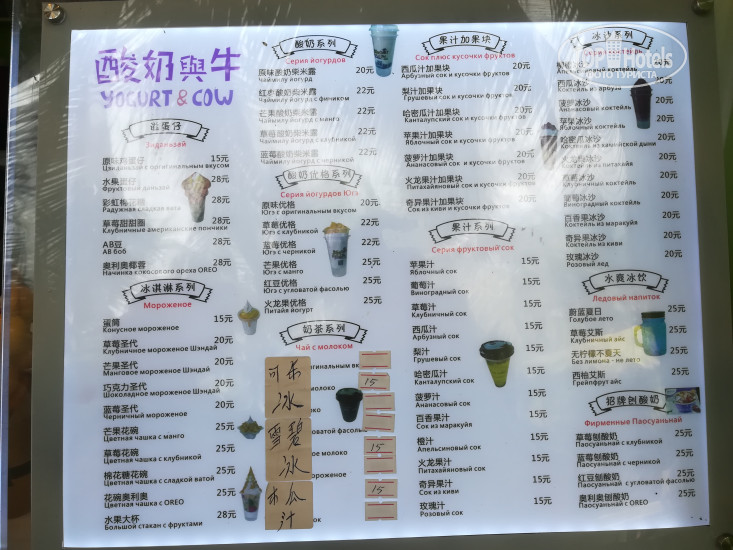 酸奶與牛
YOGURT & COW
鸡蛋仔
原味鸡蛋仔 15元
Цзиданьзай с оригинальным вкусом
水果蛋仔 28元
彩虹棉花糖 28元
Радужная сладкая вата
草莓甜甜圈 28元
Клубничные американские пончики
AB豆 28元
AB боб
奥利奥椰蓉 28元
Начинка кокосового ореха OREO
冰淇淋系列
Мороженое
蛋筒 15元
Конусное мороженое
草莓圣代 20元
Клубничное мороженое Шэндай
芒果圣代 20元
Манговое мороженое Шэндай
巧克力圣代 20元
Шоколадное мороженое Шэндай
蓝莓圣代 20元
Черничный мороженое
芒果花碗 25元
Цветная чашка с манго
草莓花碗 25元
Цветная чашка с клубникой
棉花糖花碗 25元
Цветная чашка с сладкой ватой
花碗奥利奥 25元
Цветная чашка с OREO
水果大杯 28元
Большой стакан с фруктами
酸奶系列
Серия йогуртов
原味酸奶紫米露 20元
Чаймилу йогурд
红枣酸奶紫米露 22元
Чаймилу йогурд с фиником
芒果酸奶紫米露 22元
Чаймилу йогурд с манго
草莓酸奶紫米露 22元
Чаймилу йогурд с клубникой
蓝莓酸奶紫米露 22元
Чаймилу йогурд с черникой
酸奶优格系列
Серия йогурдов Югэ
原味优格 20元
Югэ с оригинальным вкусом
草莓优格 22元
Югэ с клубникой
蓝莓优格 22元
Югэ с черникой
芒果优格 25元
Югэ с манго
红豆优格 25元
Югэ с угловатой фасолью
火龙果优格 25元
Питайя йогурт
奶茶系列
Чай с молоком
可乐
冰 15
雪碧
冰 15
木瓜
汁 15
果汁加果块
Сок плюс кусочки фруктов
西瓜汁加果块 20元
Арбузный сок и кусочки фруктов
梨汁加果块 20元
Грушевый сок и кусочки фруктов
哈密瓜汁加果块 20元
Канталупский сок и кусочки фруктов
苹果汁加果块 20元
Яблочный сок и кусочки фруктов
菠萝汁加果块 20元
Ананасовый сок и кусочки фруктов
火龙果汁加果块 20元
Питахайяновый сок и кусочки фруктов
奇异果汁加果块 20元
Сок из киви и кусочки фруктов
果汁系列
Серия фруктовый сок
苹果汁 15元
Яблочный сок
葡萄汁 15元
Виноградный сок
草莓汁 15元
Клубничный сок
西瓜汁 15元
Арбузный сок
梨汁 15元
Грушевый сок
哈密瓜汁 15元
Канталупский сок
菠萝汁 15元
Ананасовый сок
百香果汁 15元
Сок из маракуйя
橙汁 15元
Апельсиновый сок
火龙果汁 15元
Питахайяновый сок
奇异果汁 15元
Сок из киви
玫瑰汁 15元
Розовый сок
冰沙系列
西瓜冰沙 20元
Коктейль из арбуза
菠萝冰沙 20元
Ананасовый коктейль
苹果冰沙 20元
Яблочный коктейль
哈密瓜冰沙 20元
Коктейль из канталупской дыни
20元
Коктейль из питахайя
草莓冰沙 20元
Клубничный коктейль
葡萄冰沙 20元
Виноградный коктейль
百香果冰沙 20元
Коктейль из маракуйя
奇异果冰沙 20元
Коктейль из киви
玫瑰冰沙 20元
Розовый лед
水爽冰饮
Ледовый напиток
蔚蓝夏日 25元
Голубое лето
草莓艾斯 25元
Клубничный айс
无柠檬不夏天 25元
Без лимона - не лето
西柚艾斯 25元
Грейпфрут айс
招牌刨酸奶
Фирменные Паосуаньнай
草莓刨酸奶 25元
Паосуаньнай с клубникой
蓝莓刨酸奶 25元
Паосуаньнай с черникой
红豆刨酸奶 25元
Паосуаньнай с угловатой фасолью
奥利奥刨酸奶 25元
Паосуаньнай с OREO
TopHotels
ФОТО ТУРИСТА